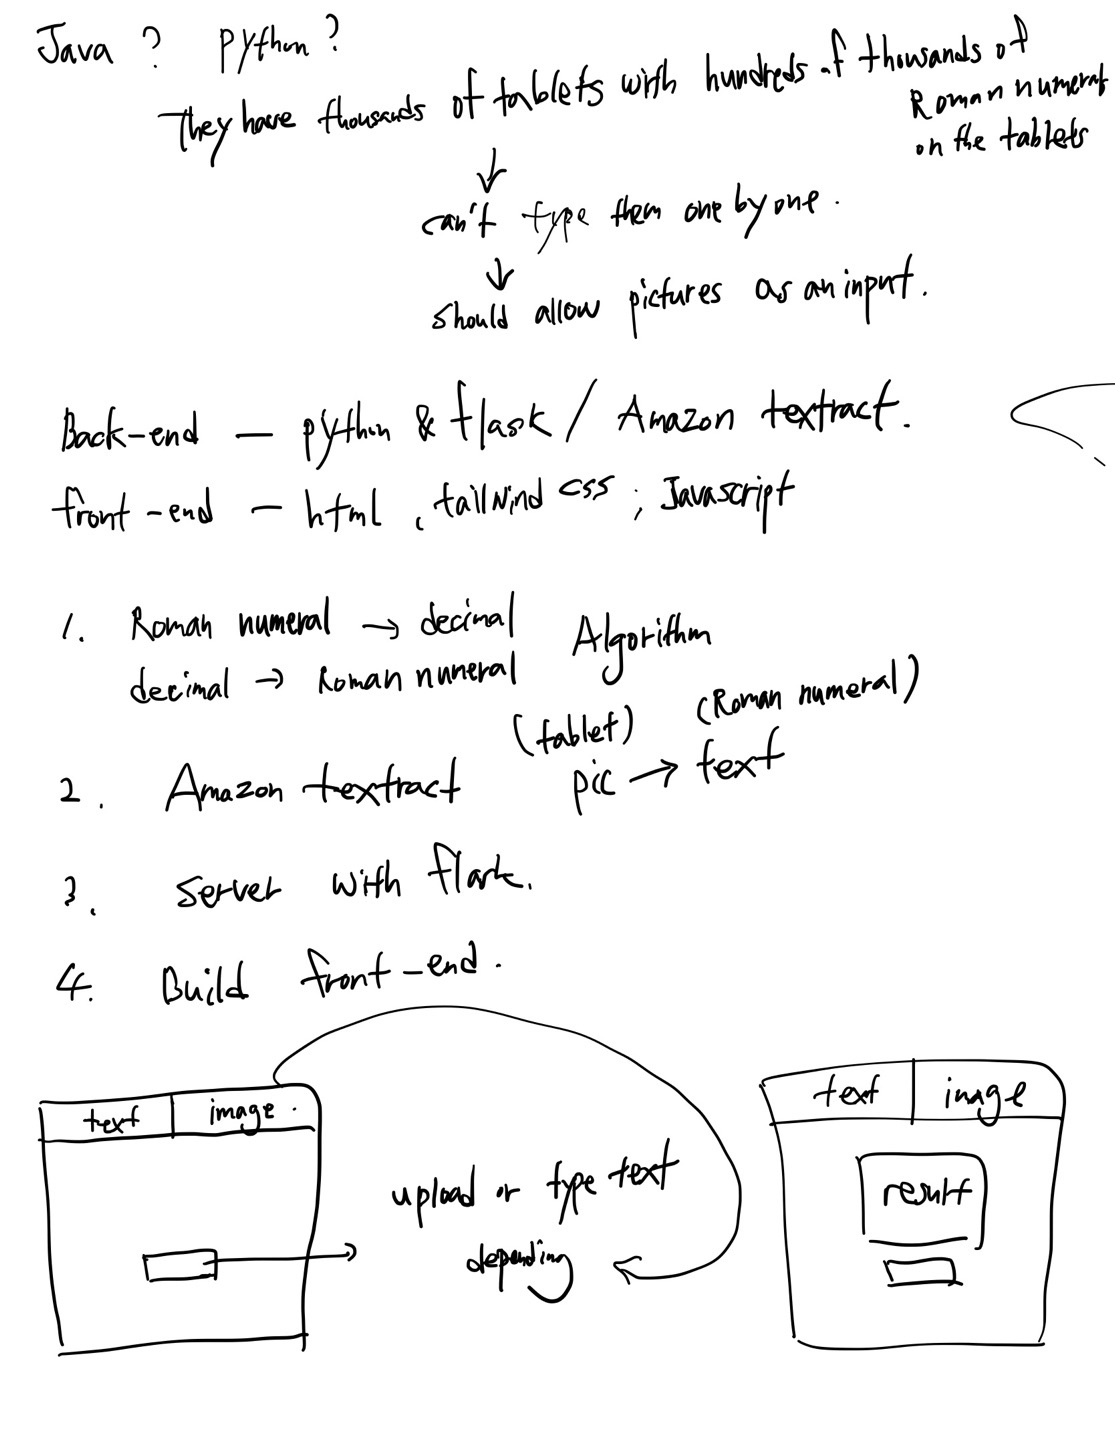 Java ? python ?
They have thousands of tablets with hundreds of thousands of
Roman numerals
on the tablets
can't type them one by one.
should allow pictures as an input.
Back-end — python & flask / Amazon textract.
front-end — html, tailwind css, Javascript
1. Roman numeral → decimal
decimal → Roman numeral
Algorithm
2. Amazon textract
(tablet) (Roman numeral)
pic → text
3. server with flask.
4. Build front-end.
text image.
upload or type text
depending
text image
result